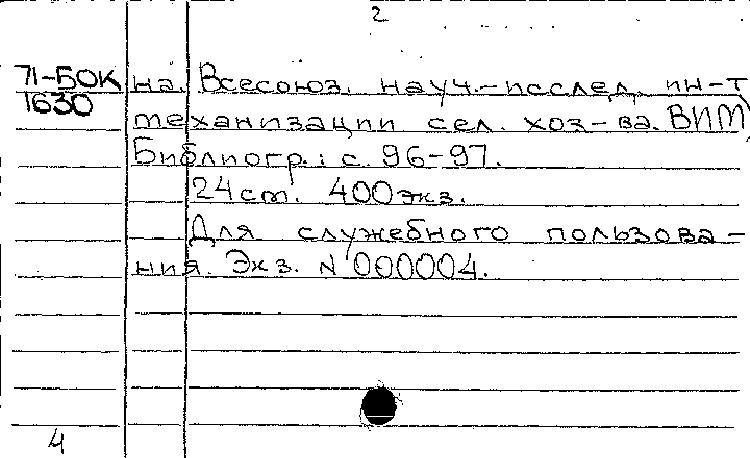 2
71-БОК
1630
на. Всесоюз. науч.-исслед. ин-т
механизации сел. хоз-ва. ВИМ)
Библиогр.: с. 96-97.
24 см. 400 экз.
Для служебного пользова-
ния. Экз. N 000004.
4